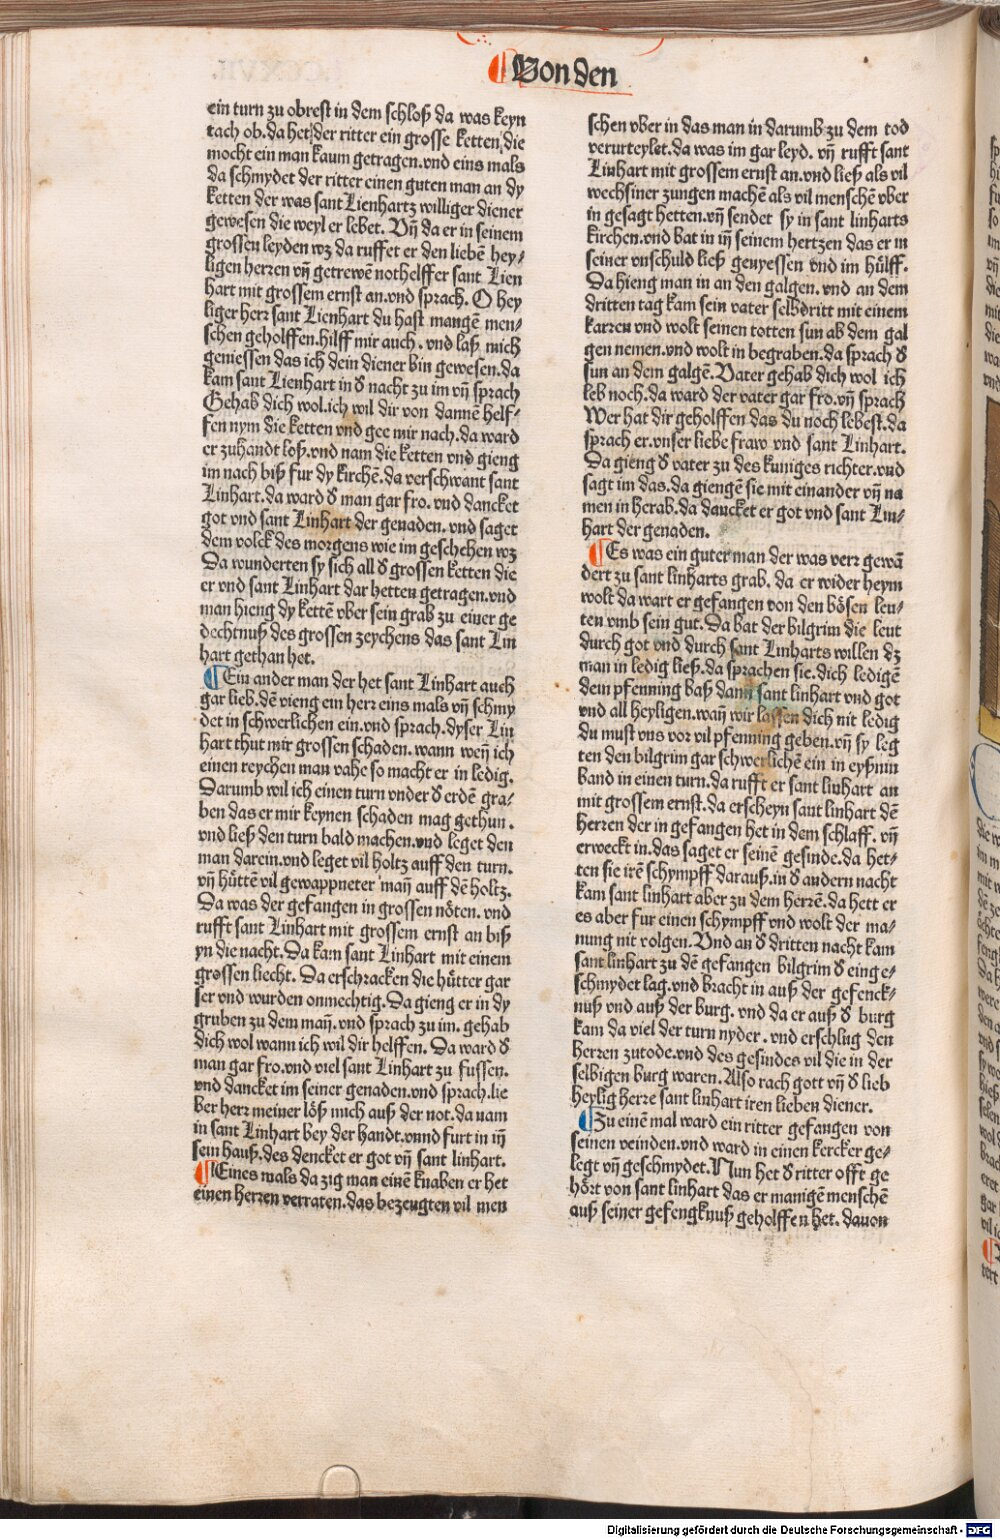 Von den
ein turn zu obrest in dem schloß da was keyn
tach ob.da het der ritter ein grosse ketten die
mocht ein man kaum getragen.vnd eins mals
da schmydet der ritter einen guten man an dy
ketten der was sant Lienhartz williger diener
gewesen die weyl er lebet. Vñ da er in seinem
grossen leyden wz da ruffet er den liebē hey⸗
ligen herren vñ getrewē nothelffer sant Lien
hart mit grossem ernst an.vnd sprach. O hey
liger herr sant Lienhart du hast mangē men⸗
schen geholffen.hilff mir auch.vnd laß mich
geniessen das ich dein diener bin gewesen.da
kam sant Lienhart in ð nacht zu im vñ sprach
Gehab dich wol.ich wil dir von dannē helf⸗
fen nym die ketten vnd gee mir nach.da ward
er zuhandt loß.vnd nam die ketten vnd gieng
im nach biß fur dy kirchē.da verschwant sant
Linhart.da ward ð man gar fro.vnd dancket
got vnd sant Linhart der genaden.vnd saget
dem volck des morgens wie im geschehen wz
Da wunderten sy sich all ð grossen ketten die
er vnd sant Linhart dar hetten getragen.vnd
man hieng dy kettē vber sein grab zu einer ge
dechtnuß des grossen zeychens das sant Lin
hart gethan het.
Ein ander man der het sant Linhart auch
gar lieb.dē vieng ein herr eins mals vñ schmy
det in schwerlichen ein.vnd sprach.dyser Lin
hart thut mir grossen schaden.wann weñ ich
einen reychen man vahe so macht er in ledig.
Darumb wil ich einen turn vnder ð erdē gra⸗
ben das er mir keynen schaden mag gethun.
vnd ließ den turn bald machen.vnd leget den
man darein.vnd leget vil holtz auff den turn.
vñ hüttē vil gewappneter mañ auff dē holtz.
Da was der gefangen in grossen nöten.vnd
rufft sant Linhart mit grossem ernst an biß
yn die nacht.Da kam sant Linhart mit einem
grossen liecht. Da erschracken die hütter gar
ser vnd wurden onmechtig.Da gieng er in dy
gruben zu dem mañ.vnd sprach zu im.gehab
dich wol wann ich wil dir helffen. Da ward ð
man gar fro.vnd viel sant Linhart zu fussen.
vnd dancket im seiner genaden.vnd sprach.lie
ber herr meiner löß mich auß der not.da nam
in sant Linhart bey der handt.vnnd furt in iñ
sein hauß.des dencket er got vñ sant linhart.
Eines mals da zig man einē knaben er het
einen herren verraten.das bezeugten vil men
schen vber in das man in darumb zu dem tod
verurteylet.da was im gar leyd.vñ rufft sant
Linhart mit grossem ernst an.vnd ließ als vil
wechsiner zungen machē als vil menschē vber
in gesagt hetten.vñ sendet sy in sant linharts
kirchen.vnd bat in iñ seinem hertzen das er in
seiner vnschuld ließ genyessen vnd im hülff.
Da hieng man in an den galgen.vnd an dem
dritten tag kam sein vater selbdritt mit einem
karren vnd wolt seinen totten sun ab dem gal
gen nemen.vnd wolt in begraben.da sprach ð
sun an dem galgē.Vater gehab dich wol ich
leb noch.da ward der vater gar fro.vñ sprach
Wer hat dir geholffen das du noch lebest.da
sprach er.vnser liebe fraw vnd sant Linhart.
Da gieng ð vater zu des kuniges richter.vnd
sagt im das.da giengē sie mit einander vñ na
men in herab.da dancket er got vnd sant Lin⸗
hart der genaden.
Es was ein guter man der was verr gewā
dert zu sant linharts grab.da er wider heym
wolt da wart er gefangen von den bösen leu⸗
ten vmb sein gut.Da bat der bilgrim die leut
durch got vnd durch sant Linharts willen dz
man in ledig ließ.da sprachen sie.dich ledigē
dein pfenning baß dann sant linhart vnd got
vnd all heyligen.wañ wir lassen dich nit ledig
du must vns vor vil pfenning geben.vñ sy leg
ten den bilgrim gar schwerlichē ein in eyßnin
band in einen turn.da rufft er sant linhart an
mit grossem ernst.da erscheyn sant linhart dē
herren der in gefangen het in dem schlaff.vñ
erweckt in.das saget er seinē gesinde.da het⸗
ten sie irē schympff darauß.in ð andern nacht
kam sant linhart aber zu dem herrē.da hett er
es aber fur einen schympff vnd wolt der ma⸗
nung nit volgen.Vnd an ð dritten nacht kam
sant linhart zu dē gefangen bilgrim ð einge⸗
schmydet lag.vnd bracht in auß der gefenck⸗
nuß vnd auß der burg.vnd da er auß ð burg
kam da viel der turn nyder.vnd erschlug den
herren zutode.vnd des gesindes vil die in der
selbigen burg waren.Also rach gott vñ ð lieb
heylig herre sant linhart iren lieben diener.
Zu einē mal ward ein ritter gefangen von
seinen veinden.vnd ward in einen kercker ge⸗
legt vñ geschmydet.Nun het ð ritter offt ge
hört von sant linhart das er manigē menschē
auß seiner gefengknuß geholffen het.dauon
Digitalisierung gefördert durch die Deutsche Forschungsgemeinschaft - DFG